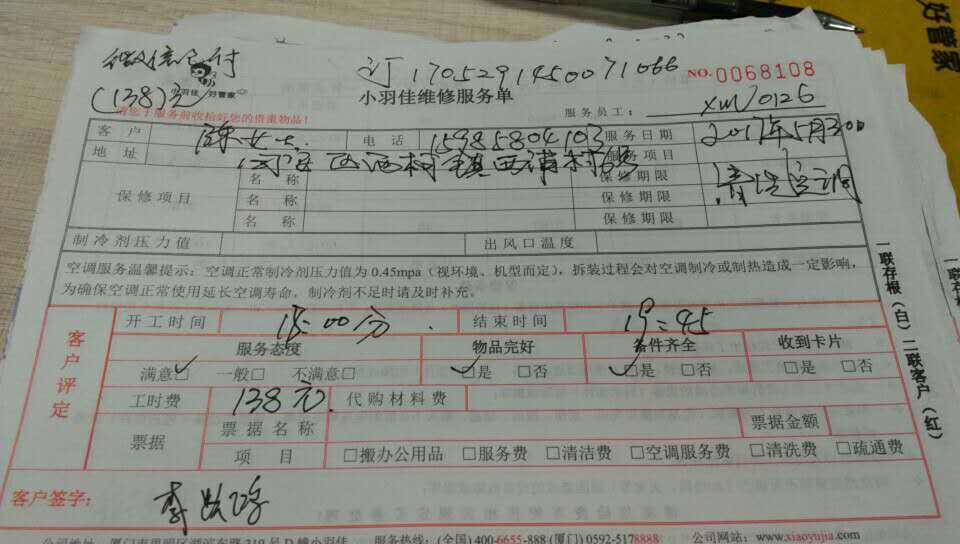 微信支付
(138)元
订170529145007​1066
小羽佳 好管家
小羽佳维修服务单
NO.0068108
请您于服务前收检好您的贵重物品！
服务员工： XM70126
客户 陈女士 电话 15985804103 服务日期 2017年5月30日
地址 西滨村 服务项目 清洗空调
保修项目 名称 保修期限
名称 保修期限
名称 保修期限
制冷剂压力值 出风口温度
空调服务温馨提示：空调正常制冷剂压力值为 0.45mpa（视环境、机型而定），拆装过程会对空调制冷或制热造成一定影响，
为确保空调正常使用延长空调寿命，制冷剂不足时请及时补充。
客户评定
开工时间 18:00分 结束时间 19:45
服务态度 物品完好 备件齐全 收到卡片
满意□ 一般□ 不满意□ □是 □否 □是 □否 □是 □否
工时费 138元. 代购材料费
票据 票据名称 票据金额
项目 □搬办公用品 □服务费 □清洁费 □空调服务费 □清洗费 □疏通费
客户签字：
公司地址：厦门市思明区湖滨东路 319 号 D 幢小羽佳 服务热线：(全国) 400-6655-888 (厦门) 0592-5178888 公司网站：www.xiaoyujia.com
一联存根（白）二联客户（红）
好管家